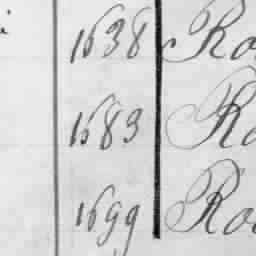 1638 Ro
1683 Ro
1699 Ro